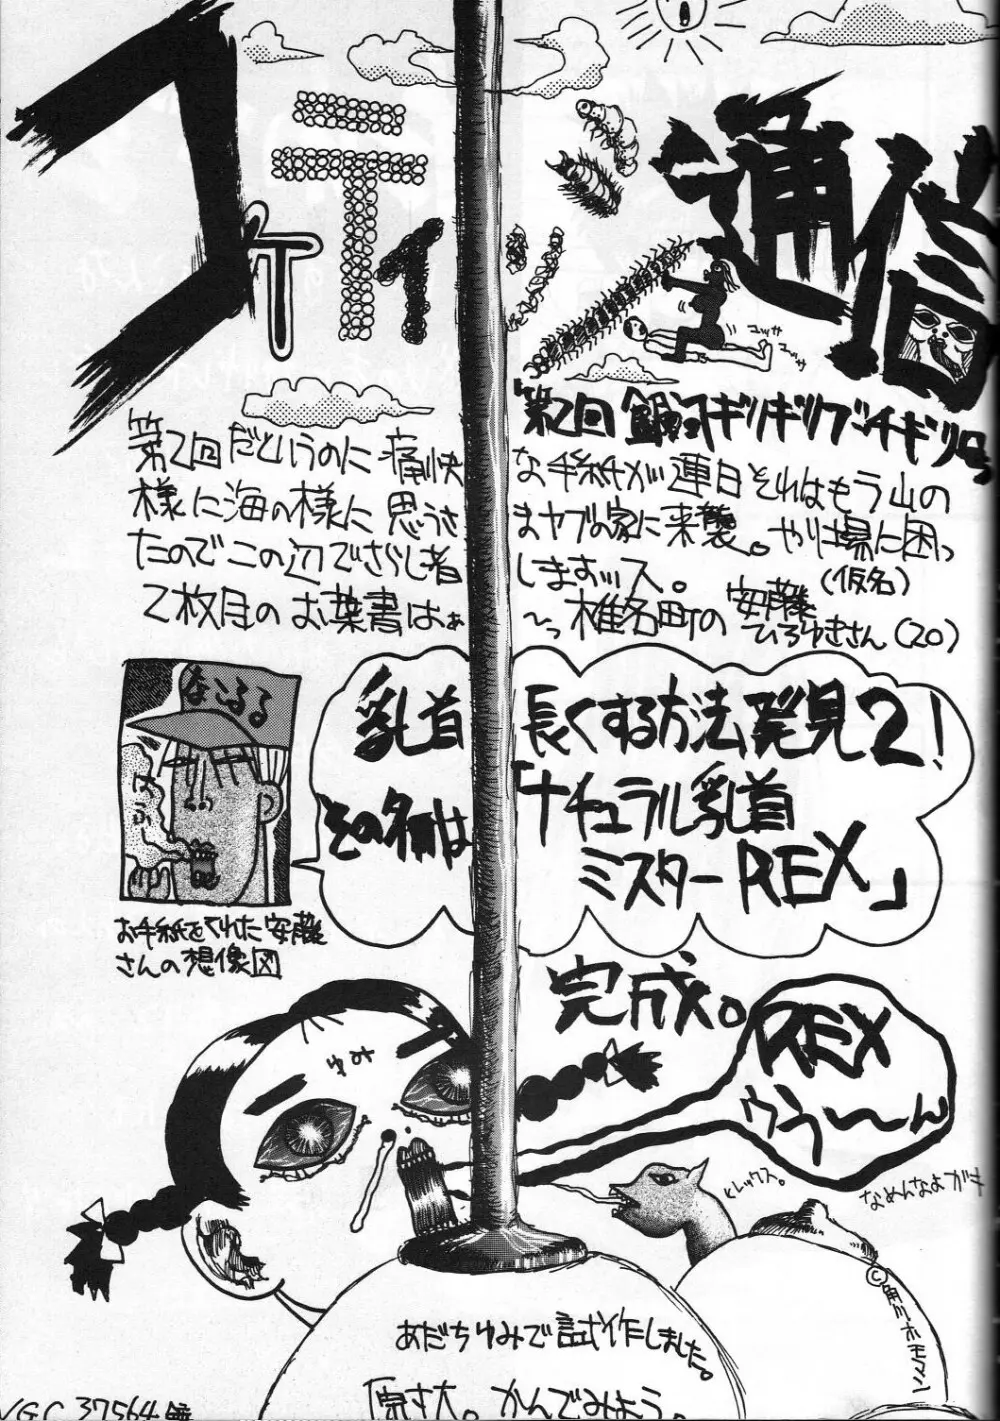 通信
第2回
第2回だというのに痛快な手紙が連日それはもう山の
様に海の様に思うさまヤブの家に来襲。やり場に困っ
たのでこの辺でさらし者にしますッス。
2枚目のお葉書はぁ〜っ椎名町の安藤ひろゆきさん(20)
(仮名)
乳首長くする方法発見2!
その名は「ナチュラル乳首
ミスターREX」
お手紙をくれた安藤
さんの想像図
完成。
REX
ゥうーーん
ゆみ
なめんなよ
あだちゆみで試作しました。
原寸大。かんでみよう。